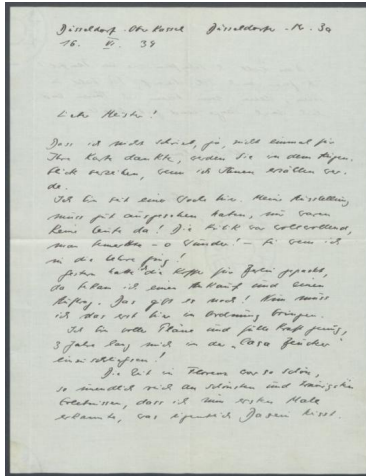 Düsseldorf-Oberkassel Düsseldorfer-Str. 30
16. VI. 39
Lieber Meister!
Dass ich nicht schrieb, ja, nicht einmal für
Ihre Karte dankte, werden Sie in dem Augen-
blick verzeihen, wenn ich Ihnen erzählen wer-
de.
Ich bin seit einer Woche hier. Meine Ausstellung
muss gut ausgesehen haben, nur waren
keine Leute da! Die Kritik war wohlwollend,
man bemerkte - o Wunder! - bei wem ich
in die Lehre ging!
Gestern hatte die Koffer für Berlin gepackt,
da bekam ich einen Ankauf und einen
Auftrag. Das gibt es noch! Nun muss
ich das erst hier in Ordnung bringen.
Ich bin voller Pläne und fühle Kraft genug,
3 Jahre lang mich in der „Casa
einzuschliessen!
Die Zeit in Florenz war so schön,
so unendlich reich an schönsten und traurigsten
Erlebnissen, dass ich zum ersten Male
erkannte, was eigentlich Dasein heisst.